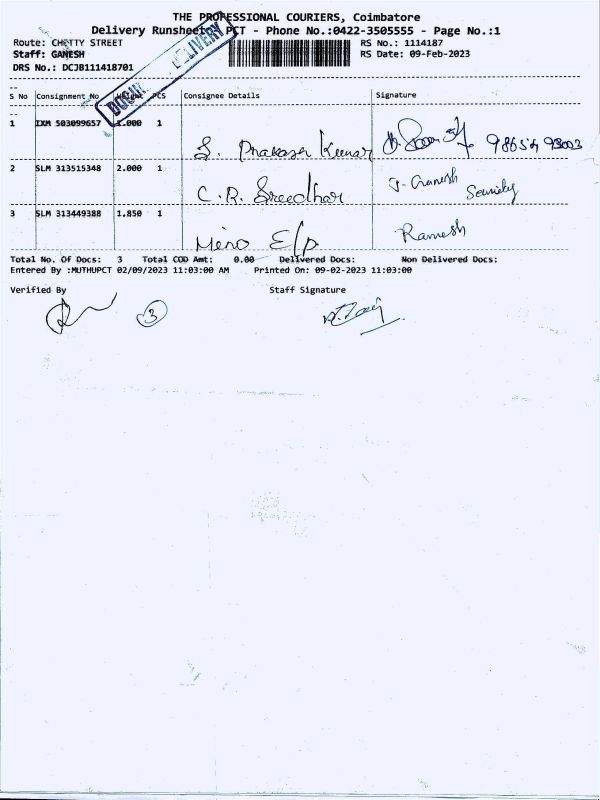 THE PROFESSIONAL COURIERS, Coimbatore
Delivery Runsheet PCT - Phone No.:0422-3505555 - Page No.:1
Route: CHETTY STREET
RS No.: 1114187
Staff: GANESH
RS Date: 09-Feb-2023
DRS No.: DCJB111418701
DELIVERY
S No Consignment No Weight PCS Consignee Details Signature
1 IXM 503099657 1.000 1 S. Prakash Kumar
2 SLM 313515348 2.000 1 C.R. Sreedhar J. Ganesh Security
3 SLM 313449388 1.850 1 E/p Ramesh
Total No. Of Docs: 3 Total COD Amt: 0.00 Delivered Docs: Non Delivered Docs:
Entered By :MUTHUPCT 02/09/2023 11:03:00 AM Printed On: 09-02-2023 11:03:00
Verified By Staff Signature
3